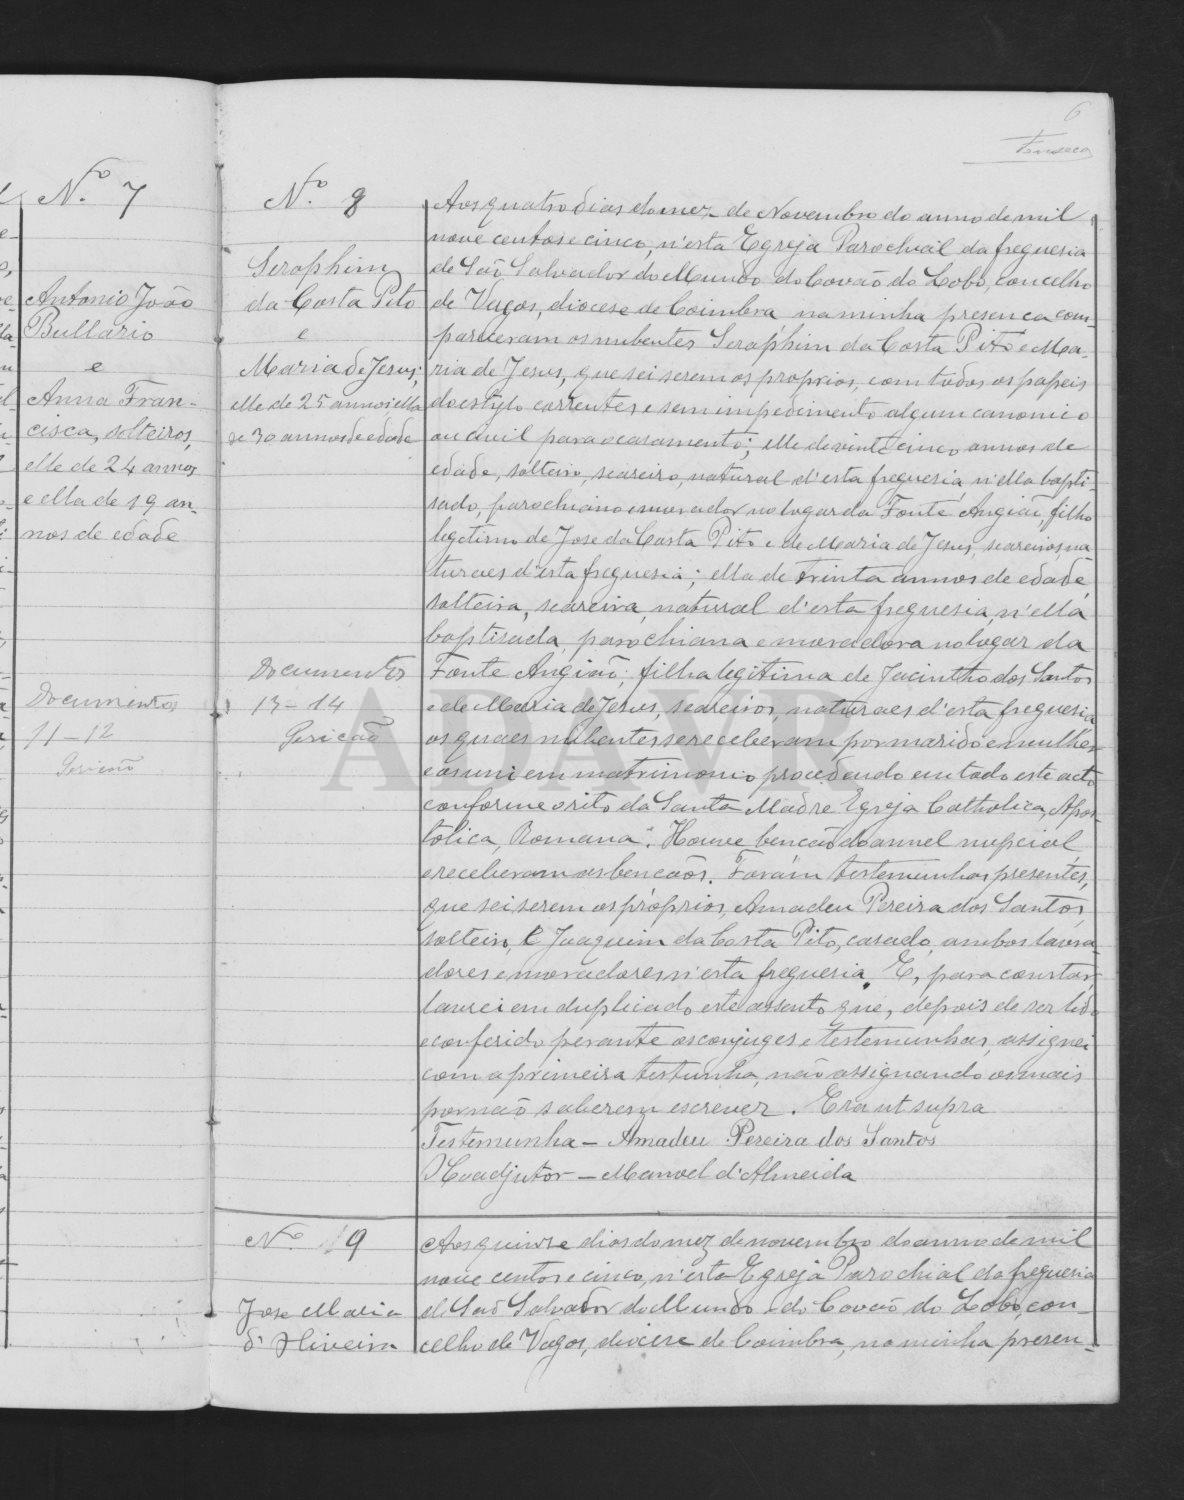 6
Fonseca
N.º 7
Antonio João
Bullario
e
Anna Fran-
cisca, solteiros,
elle de 24 annos
e ella de 19 an-
nos de edade
Documentos
11-12
N.º 8
Seraphim
da Costa Pito
e
Maria de Jesus;
elle de 25 annos ella
de 30 annos de edade
Documentos
13-14
Aos quatro dias do mez de Novembro do anno de mil
nove centos e cinco, n'esta Egreja Parochial da freguesia
de São Salvador do Mundo do Covão do Lobo, concelho
de Vagos, diocese de Coimbra na minha presença com-
pareceram os nubentes Seraphim da Costa Pito e Ma-
ria de Jesus, que sei serem os proprios, com todos os papeis
do estylo correntes e sem impedimento algum canonico
ou civil para o casamento; elle de vinte cinco annos de
edade, solteiro, seareiro, natural d'esta freguesia, n'ella bapti-
sado, parochiano e morador no lugar da Fonte Angião, filho
legitimo de Jose da Costa Pito e de Maria de Jesus, seareiros, na-
turaes d'esta freguesia; ella de trinta annos de edade,
solteira, seareira, natural d'esta freguesia, n'ella
baptisada, parochiana e moradora no lugar da
Fonte Angião, filha legitima de Jacintho dos Santos
e de Maria de Jesus, seareiros, naturaes d'esta freguesia
os quaes nubentes se receberam por marido e mulher
e os uni em matrimonio procedendo em todo este acto
conforme o rito da Santa Madre Egreja Catholica, Apos-
tolica, Romana. Houve benção do annel nupcial
e receberam as bençãos. Foram testemunhas presentes,
que sei serem os próprios, Amadeu Pereira dos Santos,
solteiro, e Joaquim da Costa Pito, casado, ambos lavra-
dores e moradores n'esta freguesia. E, para constar,
lavrei em duplicado este assento que, depois de ser lido
e conferido perante os conjuges e testemunhas, assignei
com a primeira testunha, não assignando os mais
por não saberem escrever. Era ut supra
Testemunha - Amadeu Pereira dos Santos
O Coadjutor - Manoel d'Almeida
N.º 9
Jose Maria
d'Oliveira
Aos quinze dias do mez de novembro do anno de mil
nove centos e cinco, n'esta Egreja Parochial da freguesia
de São Salvador do Mundo do Covão do Lobo, con-
celho de Vagos, diocese de Coimbra, na minha presen-
ADAVR